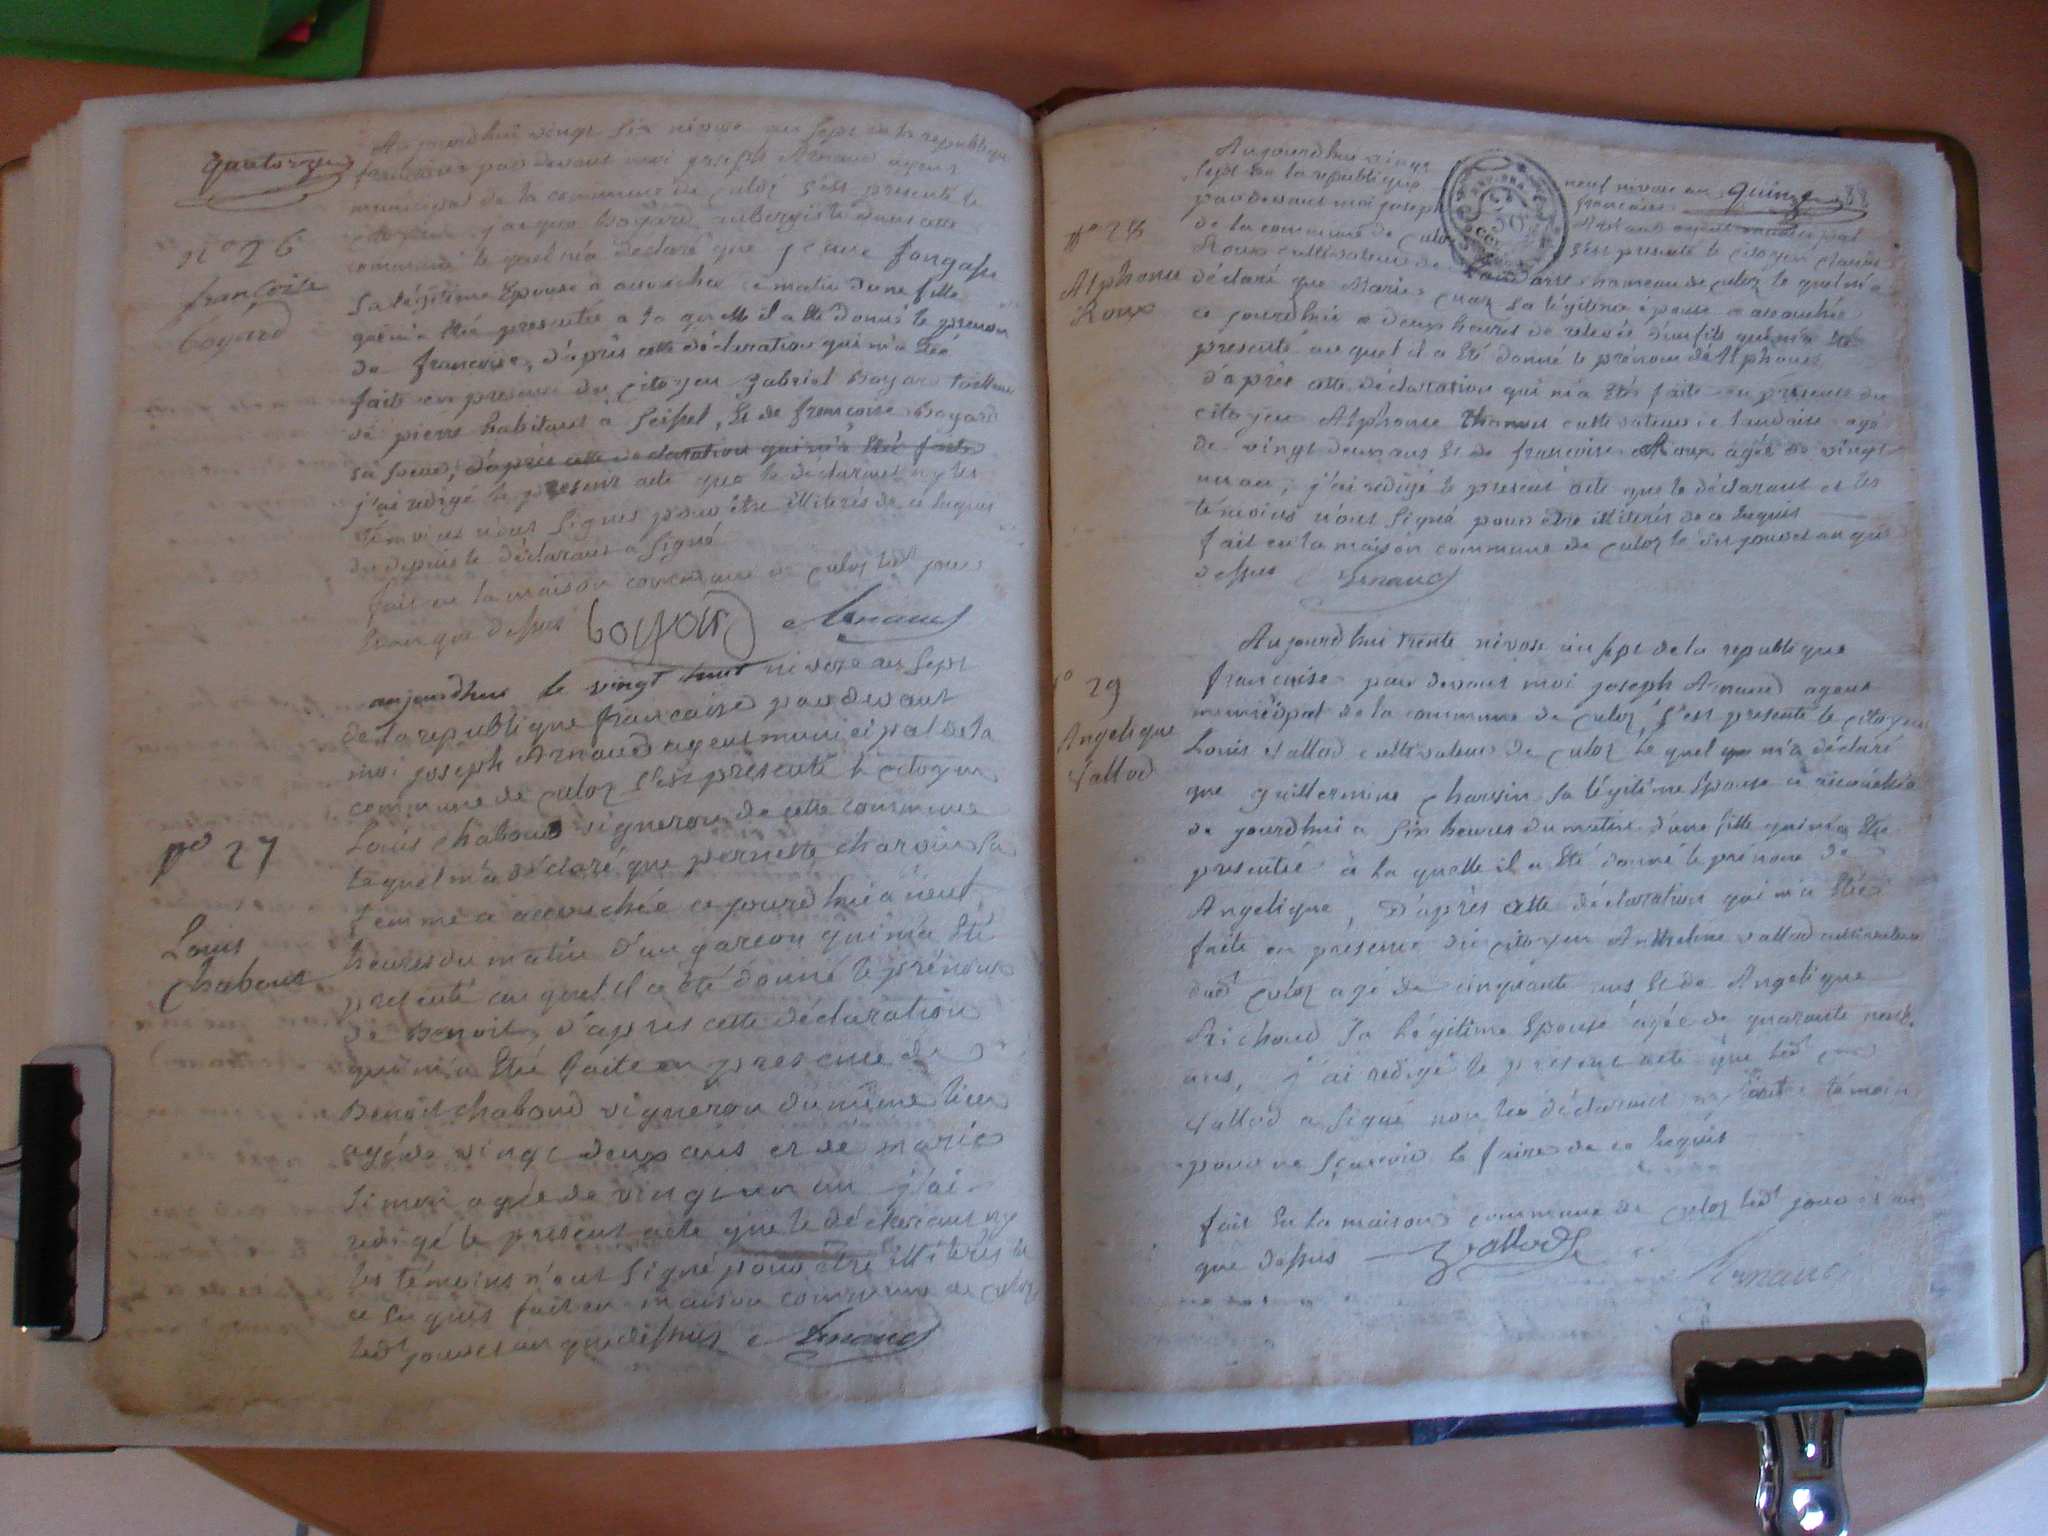 quatorze
Aujourdhui vingt six nivose an sept de la republique
francaise par devant moi joseph Arnaud agent
municipal de la commune de culoz s'est presenté le
citoyen jacque bogard aubergiste dans cette
commune le quel m'a declaré que
sa légitime Epouse a accouchée ce matin d'une fille
qui m'a étté presentée a la quelle il a été donné le prenom
de francoise, d'après cette déclaration qui m'a étée
faite en presence du citoyen gabriel bogard
de pierre habitant a seissel, et de francoise bogard
sa soeur, d'après cette declaration qui m'a étté faite
j'ai redigé le present acte que le déclarant ny les
témoins n'ont signés pour être illiterés de ce requis
du depuis le déclarant a signé
fait en la maison commune de culoz ledt jour
et an que dessus Arnaud
n° 26
françoise
bogard
aujourdhui le vingt huit nivose an sept
de la republique francaise par devant
moi joseph Arnaud agent municipal de la
commune de culoz s'est presenté le citoyen
Louis chaboud vigneron de cette commune
le quel m'a déclaré que pernette charvin sa
femme a accouchée ce jourd'hui a neuf
heures du matin d'un garcon qui m'a été
presenté au quel il a été donné le prénom
de Benoit, d'apres cette déclaration
qui m'a étté faite en presence de
Benoit chaboud vigneron du même lieu
agé de vingt deux ans et de marie
simon agée de vingt un an j'ai
redigé le present acte que le déclarant ny
les témoins n'ont signé pour être illiterés de
ce enquis fait en maison commune de culoz
ledt jour et an que dessus Arnaud
n° 27
Louis
Chaboud
quinze 88
Aujourdhui vingt neuf nivose an
sept de la republique francaise
par devant moi joseph Arnaud agent municipal
de la commune de culoz s'est presenté le citoyen claude
Roux cultivateur de hameau de culoz le quel m'a
déclaré que Marie cuaz sa légitime épouse a accouchée
ce jourdhui a deux heures de relevée d'un fils qui m'a été
presenté au quel il a été donné le prénom de Alphonse
d'après cette déclaration qui m'a étés faite en présence du
citoyen Alphonse cultivateur a landaise agé
de vingt deux ans et de francoise Roux agée de vingt
un an, j'ai redigé le present acte que le déclarant et les
témoins n'ont signé pour être illiterés de ce requis
fait en la maison commune de culoz le dit jour et an que
dessus Arnaud
n° 28
Alphonse
Roux
Aujourdhui trente nivose an sept de la republique
francaise par devant moi joseph Arnaud agent
municipal de la commune de culoz, s'est presenté le citoyen
Louis vallod cultivateur de culoz le quel m'a déclaré
que guillermine charvin sa légitime Epouse a accouchée
de jourdhui a six heures du matin d'une fille qui m'a étée
presentée a la quelle il a été donné le prénom de
Angelique, D'après cette déclaration qui m'a étée
faite en présence du citoyen Anthelme vallod cultivateur
dudt culoz agé de cinquante ans et de Angelique
Richoud sa légitime Epouse agée de quarante neuf
ans, j'ai redigé le present acte que ledt
vallod a signé non le déclarant ny l'autre témoin
pour ne sçavoir le faire de ce requis
fait En la maison commune de culoz ledt jour et an
que dessus vallod Arnaud
n° 29
Angelique
vallod